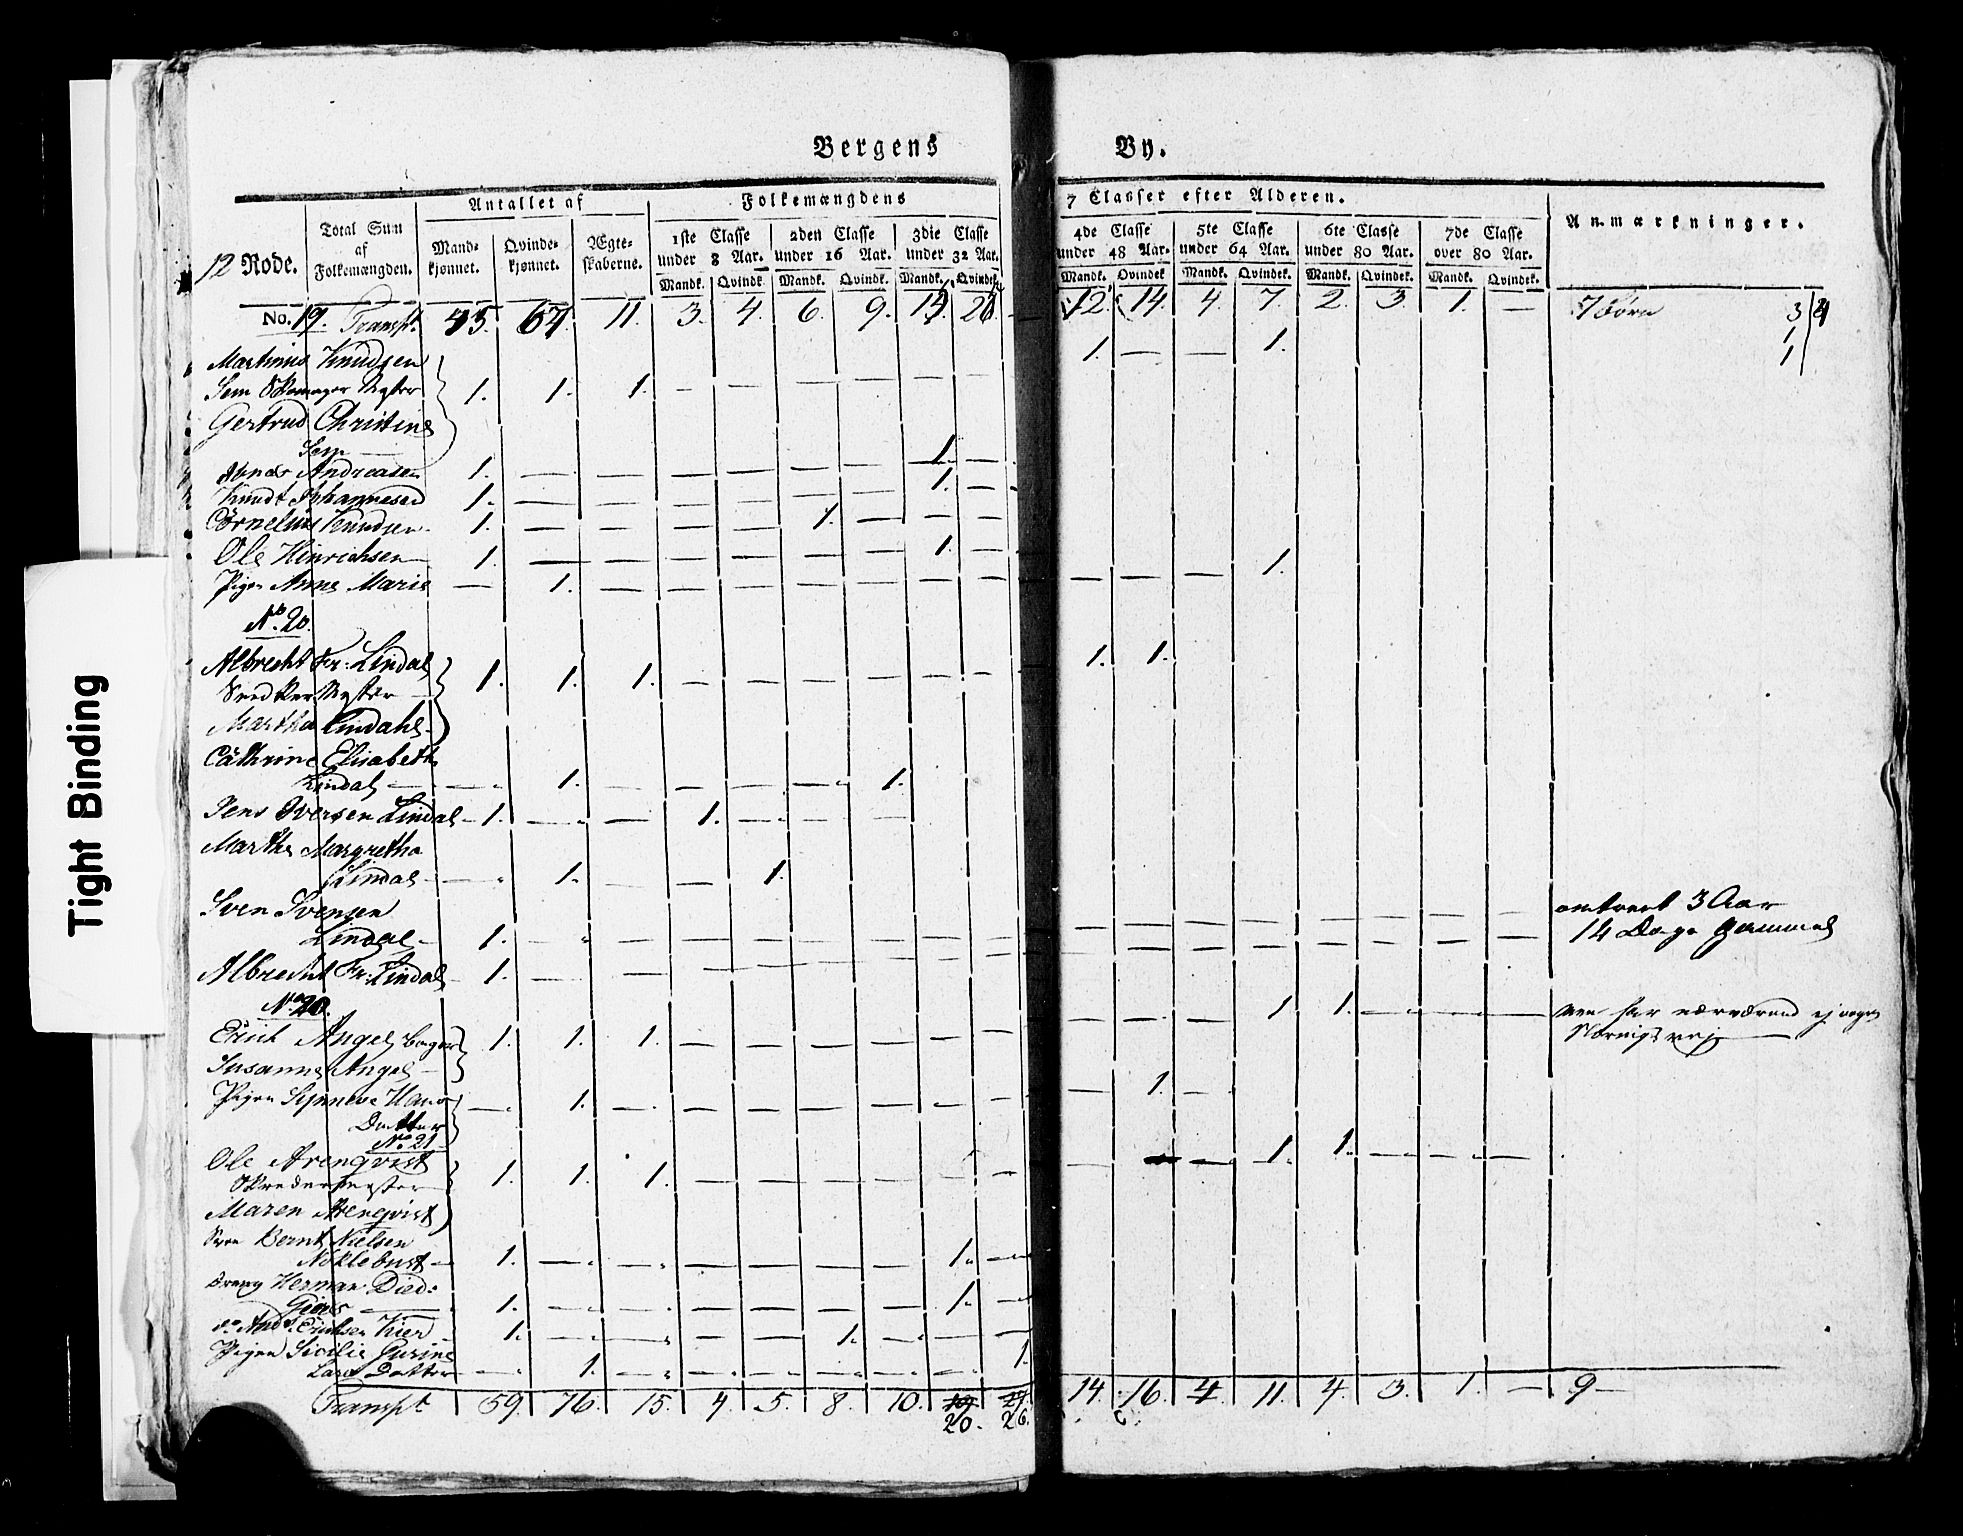 Bergens By.
Antallet af
Folkemængdens 7 Classer efter Alderen.
Anmærkninger.
12 Rode.
Total Sum af Folkemængden.
Mandkjønnet.
Qvindekjønnet.
Ægteskaberne.
1ste Classe under 8 Aar.
2den Classe under 16 Aar.
3die Classe under 32 Aar.
4de Classe under 48 Aar.
5te Classe under 64 Aar.
6te Classe under 80 Aar.
7de Classe over 80 Aar.
Mandk. Qvindek. Mandk. Qvindek. Mandk. Qvindek. Mandk. Qvindek. Mandk. Qvindek. Mandk. Qvindek. Mandk. Qvindek.
No. 19. Transpt. 45. 67. 11. 3. 4. 6. 9. 12. 14. 4. 7. 2. 3. 1. — 7 Børn 3
Martinus Knudsen 1. — — 1. 1
1
Sem Skomager Mester 1. 1. 1. — — — — — —
Gertrud Christine
Sem —
Andreasen 1. — — — — — — 1. —
Knudt Johannesen 1. — — — — — — 1. —
Cornelius Knudsen 1. — — — — 1. — — —
Ole Hinrichsen 1. — — — — — — 1. —
Pigen Anne Marie — 1. — — — — — — — — — — 1.
No. 20.
Albrecht Fr: Lindal 1. 1. 1. — — — — — — 1. 1.
Snedker Mester —
Martha Lindahl
Cathrine Elisabeth
Lindal — — 1. — — — — 1.
Jens Iversen Lindal 1. — — 1. — — —
Marthe Margretha
Lindal — — 1. — — 1.
Sven Svensen
Lindal 1. — — — — — — — — — — — — — — — — omtrent 3 Aar
Albrecht Fr. Lindal 1. — — — — — — — — — — — — — — — — 14 Dage gammel
No. 20.
Erich Angel 1. 1. 1. — — — — — — — — — 1. 1. — — —
Susanne Angel —
Pigen Synneve Hans — 1. — — — — — — — — 1. — —
Datter
No. 21.
Ole Arenqvist 1. 1. 1. — — — — — — — — — 1. 1. — — —
Skredermester
Maren Arenqvist
Bernt Nielsen
Noklebust 1. — — — — — — 1. —
Dreng Herman Died:
1. — — — — — — 1. —
do. Erichsen Kier 1. — — — — 1. — — —
Pigen Sicilie Gurine
Lars Datter — 1. — — — — — — 1.
Transpt 59. 76. 15. 4. 5. 8. 10. 19. 14. 16. 4. 11. 4. 3. 1. — 9 —
20. 26.
Tight Binding